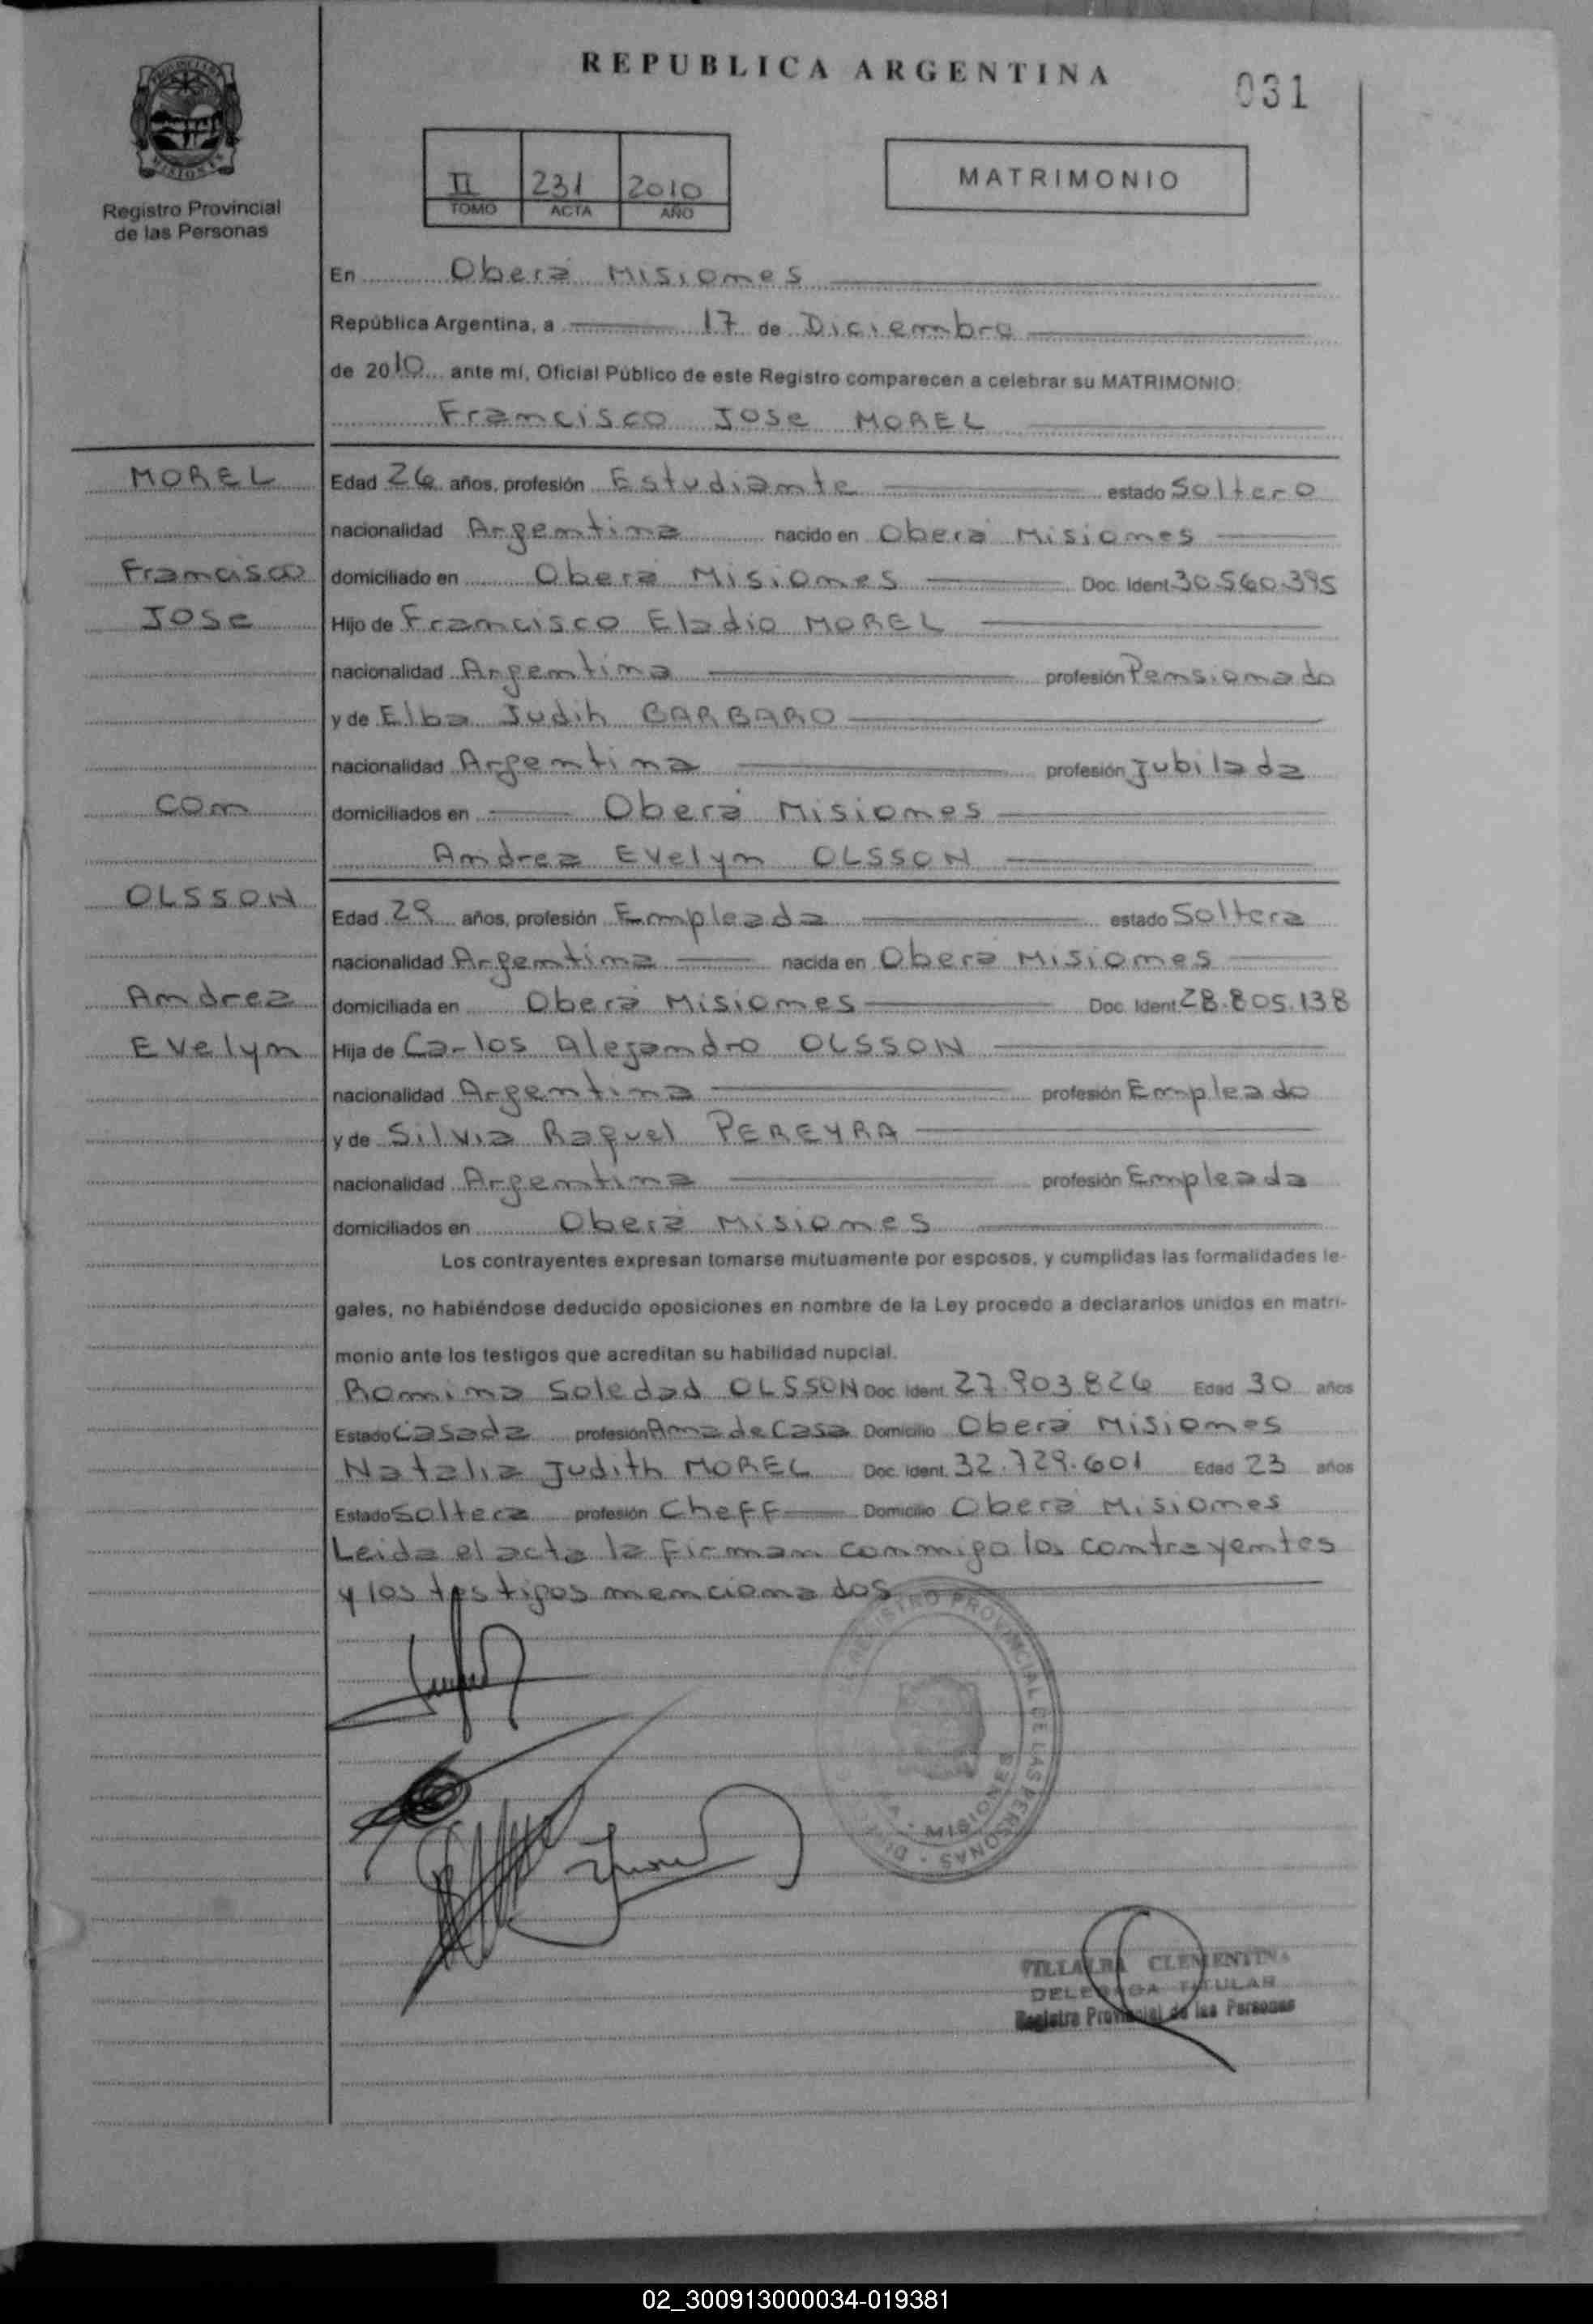 REPUBLICA ARGENTINA
031
PROVINCIA DE
MISIONES
Registro Provincial
de las Personas
II 231 2010
TOMO ACTA AÑO
MATRIMONIO
En Oberá Misiones
República Argentina, a 17 de Diciembre
de 2010 ante mí, Oficial Público de este Registro comparecen a celebrar su MATRIMONIO:
Francisco Jose MOREL
MOREL
Edad 26 años, profesión Estudiante estado Soltero
nacionalidad Argentina nacido en Oberá Misiones
Francisco
domiciliado en Oberá Misiones Doc. Ident. 30.560.395
Jose
Hijo de Francisco Eladio MOREL
nacionalidad Argentina profesión Pensionado
y de Elba Judih BARBARO
nacionalidad Argentina profesión Jubilada
con
domiciliados en Oberá Misiones
Andrea Evelyn OLSSON
OLSSON
Edad 29 años, profesión Empleada estado Soltera
nacionalidad Argentina nacida en Oberá Misiones
Andrea
domiciliada en Oberá Misiones Doc. Ident. 28.805.138
Evelyn
Hija de Carlos Alejandro OLSSON
nacionalidad Argentina profesión Empleado
y de Silvia Raquel PEREYRA
nacionalidad Argentina profesión Empleada
domiciliados en Oberá Misiones
Los contrayentes expresan tomarse mutuamente por esposos, y cumplidas las formalidades le-
gales, no habiéndose deducido oposiciones en nombre de la Ley procedo a declararlos unidos en matri-
monio ante los testigos que acreditan su habilidad nupcial.
Romina Soledad OLSSON Doc. Ident. 27.903.826 Edad 30 años
Estado Casada profesión Ama de Casa Domicilio Oberá Misiones
Natalia Judith MOREL Doc. Ident. 32.729.601 Edad 23 años
Estado Soltera profesión Cheff Domicilio Oberá Misiones
Leida el acta la firman conmigo los contrayentes
y los testigos mencionados
REGISTRO PROVINCIAL DE LAS PERSONAS
MISIONES
VILLALBA CLEMENTINA
DELEGADA TITULAR
Registro Provincial de las Personas
02_300913000034-019381